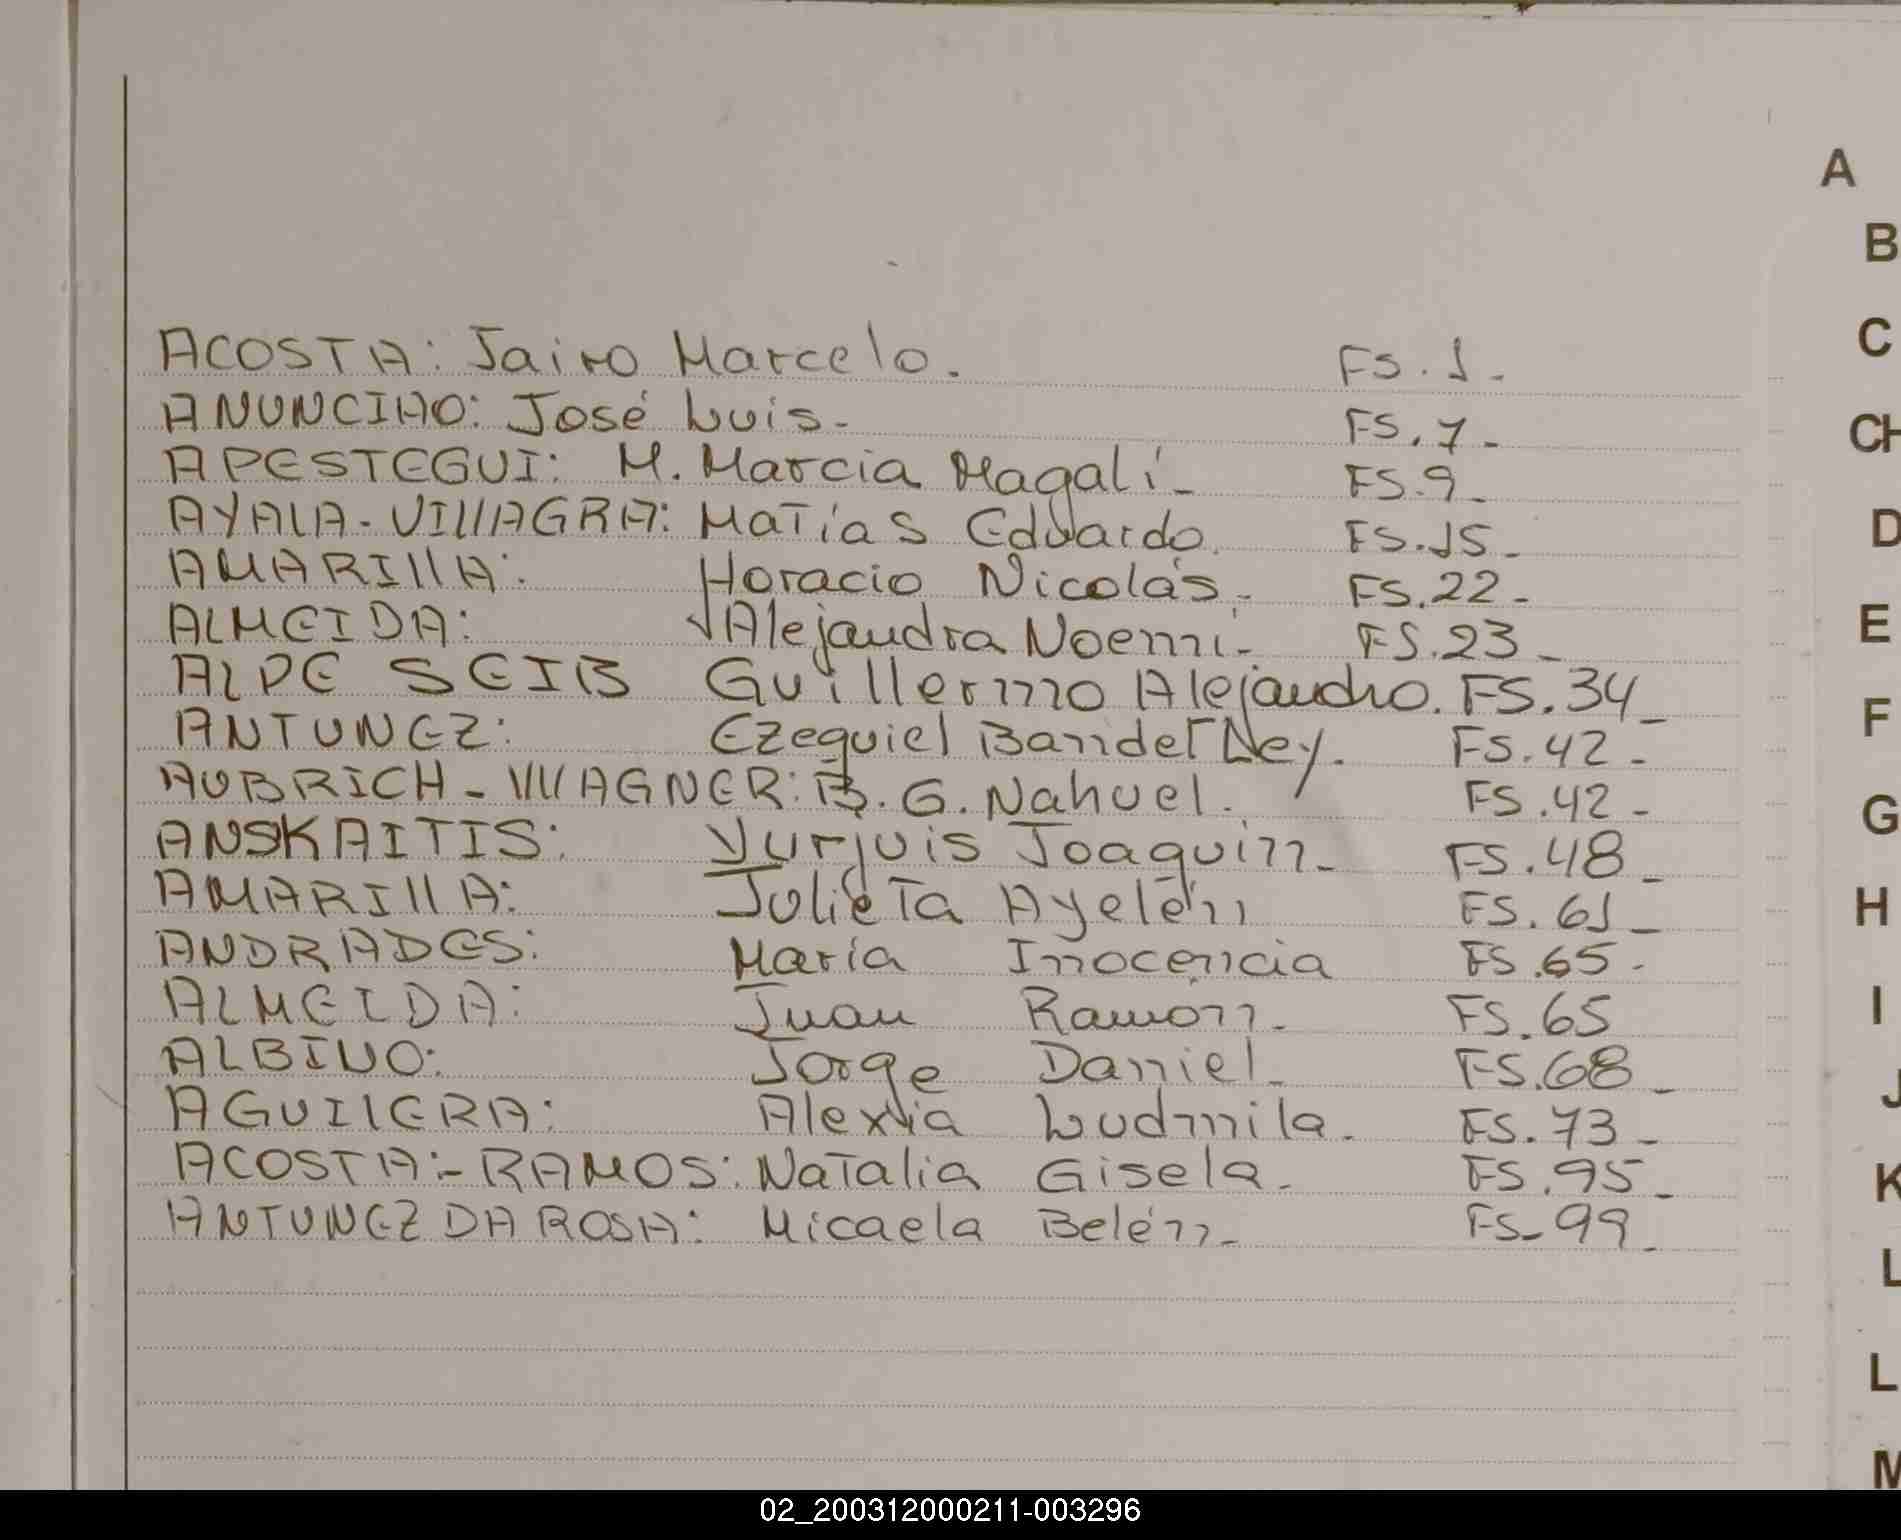 A
B
C
CH
D
E
F
G
H
I
J
K
L
L
M
ACOSTA: Jairo Marcelo. FS. 1.
ANUNCIAO: José Luis- FS. 7-
APESTEGUI: M. Marcia Magalí- FS.9-
AYALA-VILLAGRA: Matías Eduardo. FS.15-
AMARILLA: Horacio Nicolás.- FS.22-
ALMEIDA: Alejandra Noemí- FS.23-
ALPE SEIB Guillermo Alejandro. FS.34-
ANTUNEZ: Ezequiel Bander Ney. FS.42-
AUBRICH-WAGNER: B. G. Nahuel. FS.42-
ANSKAITIS: Yurjuis Joaquín- FS.48-
AMARILLA: Julieta Ayelén FS.61-
ANDRADES: María Inocencia FS.65-
ALMEIDA: Juan Ramón- FS.65
ALBINO: Jorge Daniel- FS.68-
AGUILERA: Alexia Ludmila. FS.73-
ACOSTA:-RAMOS: Natalia Gisela. FS.95-
ANTUNEZ DA ROSA: Micaela Belén- FS-99-
02_200312000211-003296